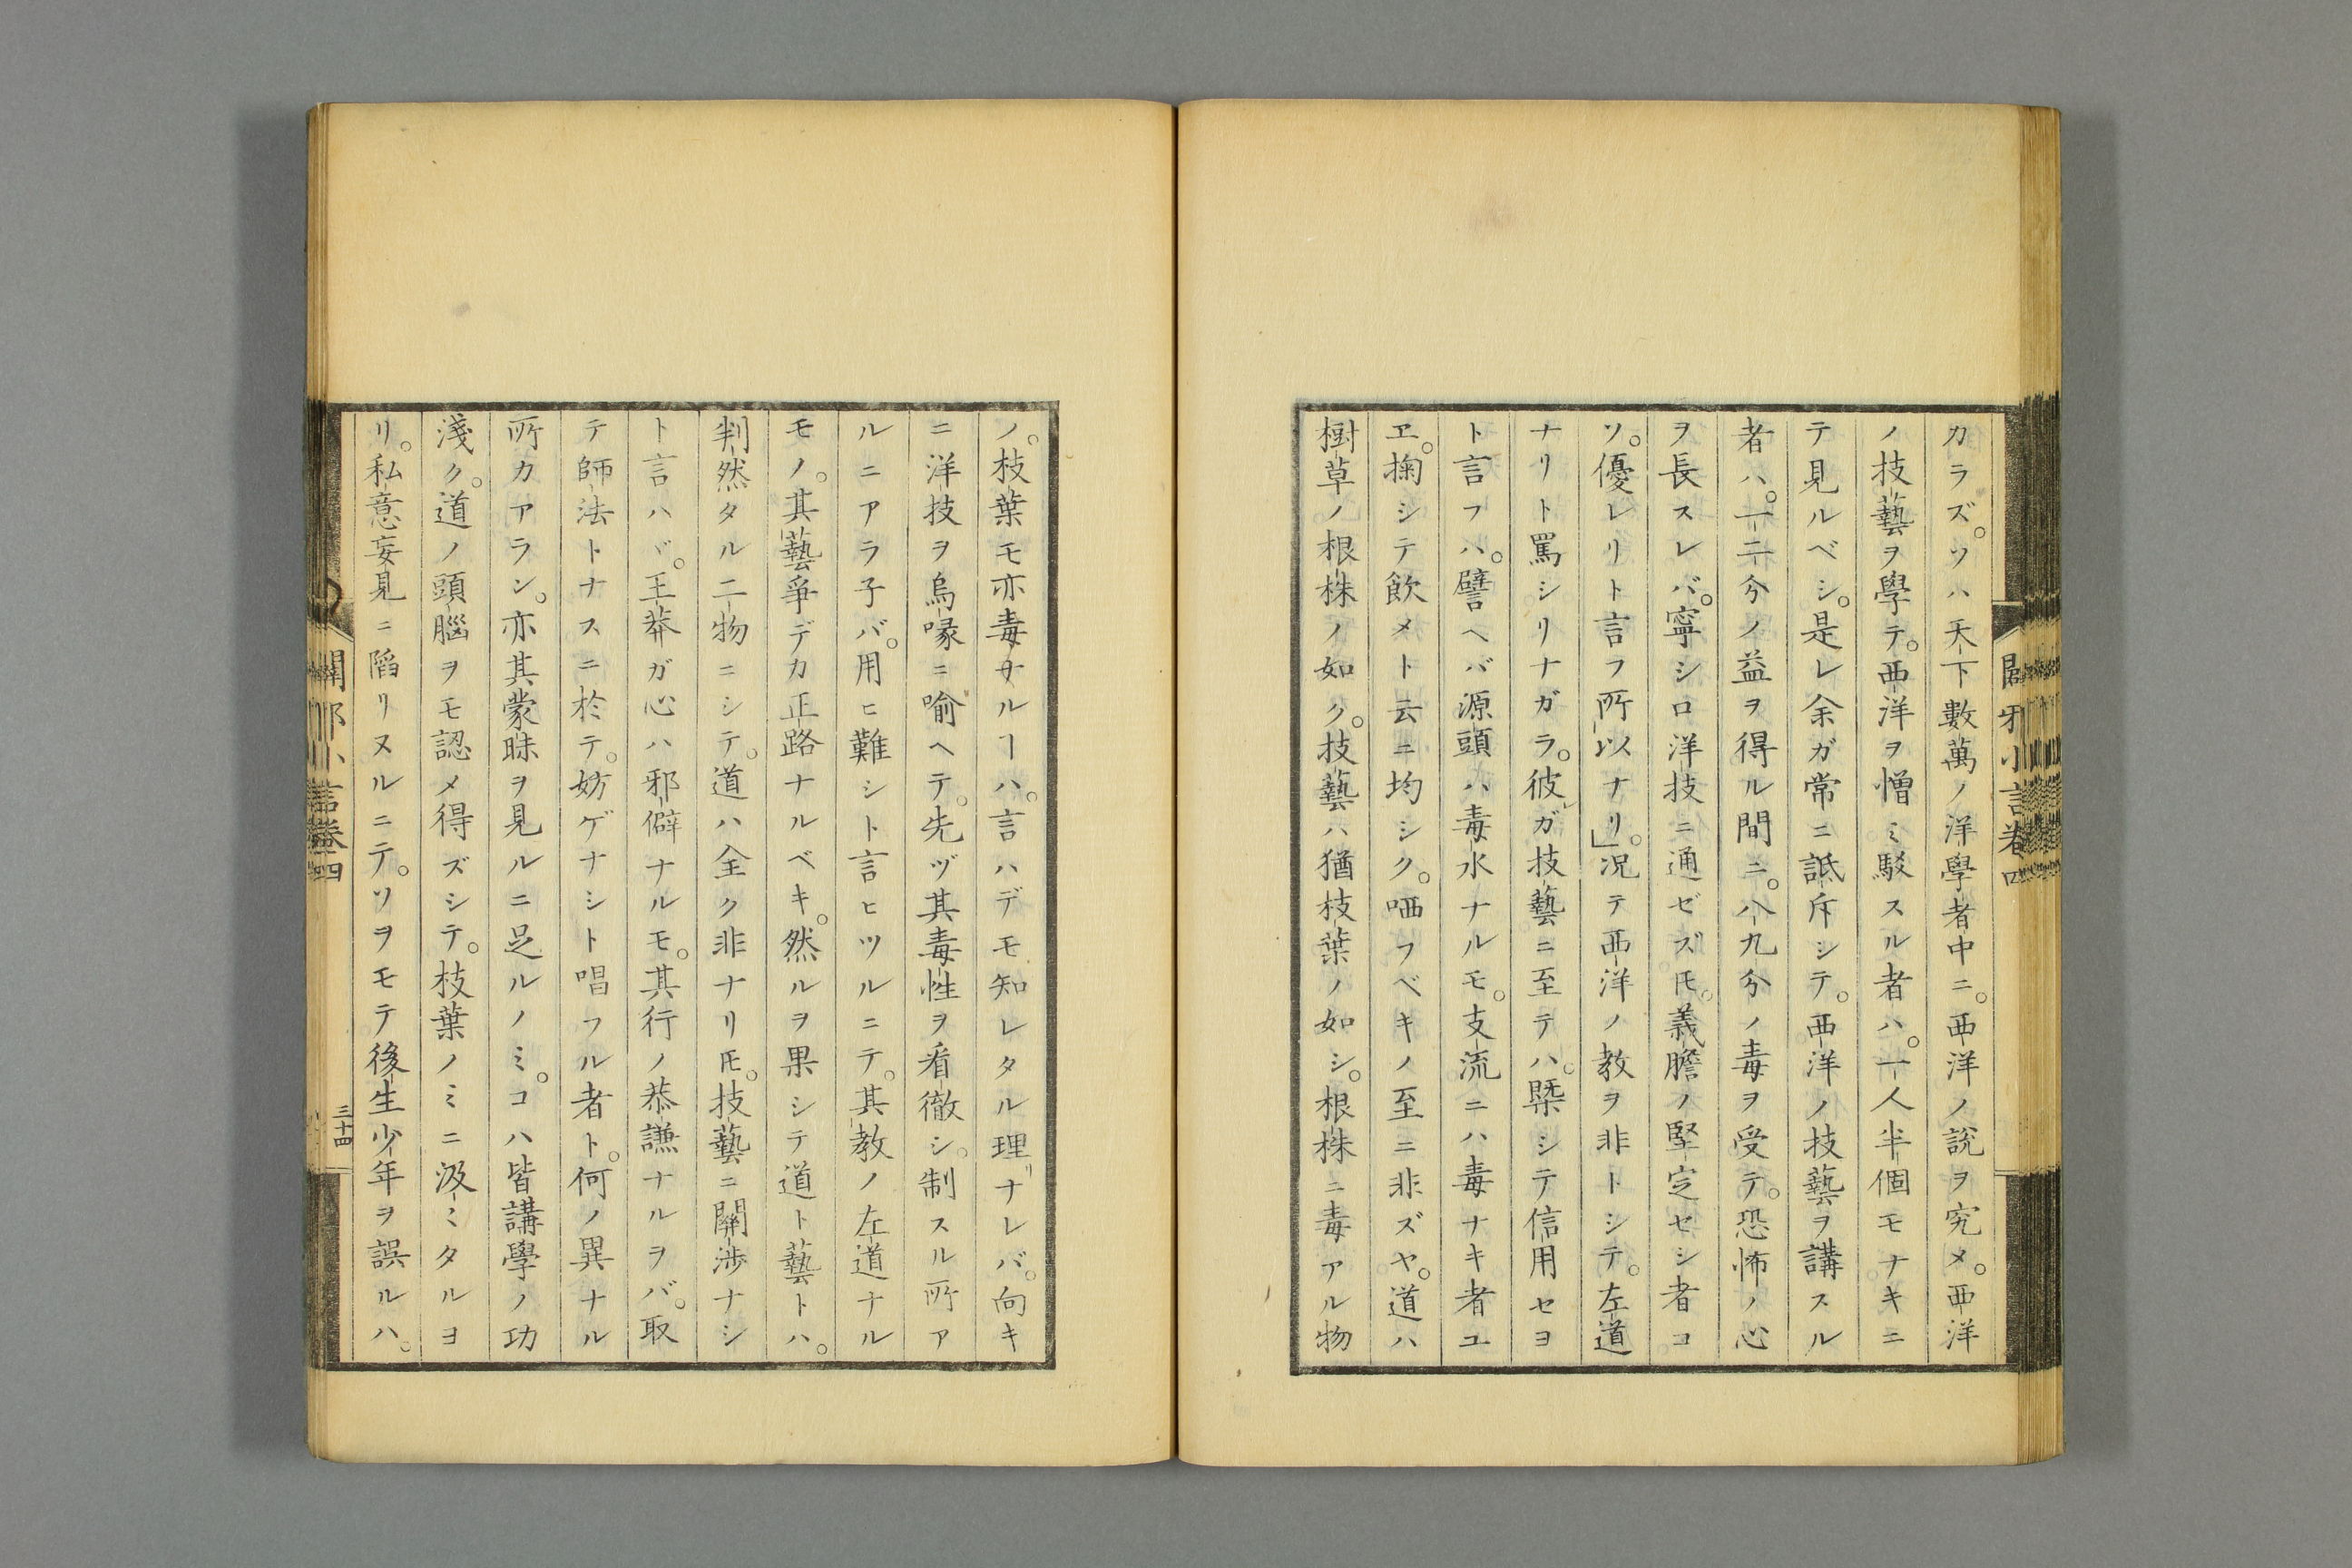 カラズ。ソハ天下數萬ノ洋學者中ニ。西洋ノ說ヲ究メ。西洋
ノ技藝ヲ學テ。西洋ヲ憎ミ駁スル者ハ。一人半個モナキニ
テ見ルベシ。是レ余ガ常ニ詆斥シテ。西洋ノ技藝ヲ講スル
者ハ。一二分ノ益ヲ得ル間ニ。八九分ノ毒ヲ受テ。恐怖ノ心
ヲ長スレバ。寧シロ洋技ニ通ゼズ𪜈。義膽ノ堅定セシ者コ
ソ。優レリト言フ所以ナリ」。況テ西洋ノ教ヲ非トシテ。左道
ナリト罵シリナガラ。彼ガ技藝ニ至テハ。槩シテ信用セヨ
ト言フハ。譬ヘバ源頭ハ毒水ナルモ。支流ニハ毒ナキ者ユ
ヱ。掬シテ飲メト云ニ均シク。哂フベキノ至ニ非ズヤ。道ハ
樹草ノ根株ノ如ク。技藝ハ猶枝葉ノ如シ。根株ニ毒アル物
闢邪小言卷四
ノ。枝葉モ亦毒ナルヿハ。言ハデモ知レタル理リナレバ。向キ
ニ洋技ヲ烏喙ニ喻ヘテ。先ヅ其毒性ヲ看徹シ。制スル所ア
ルニアラ子バ。用ヒ難シト言ヒツルニテ。其教ノ左道ナル
モノ。其藝爭デカ正路ナルベキ。然ルヲ果シテ道ト藝トハ。
判然タル二物ニシテ。道ハ全ク非ナリ𪜈。技藝ニ關渉ナシ
ト言ハヾ。王莽ガ心ハ邪僻ナルモ。其行ノ恭謙ナルヲバ。取
テ師法トナスニ於テ。妨ゲナシト唱フル者ト。何ノ異ナル
所カアラン。亦其蒙昧ヲ見ルニ足ルノミ。コハ皆講學ノ功
淺ク。道ノ頭腦ヲモ認メ得ズシテ。枝葉ノミニ汲ミタルヨ
リ。私意妄見ニ陷リヌルニテ。ソヲモテ後生少年ヲ誤ルハ。
闢邪小言卷四
三十四